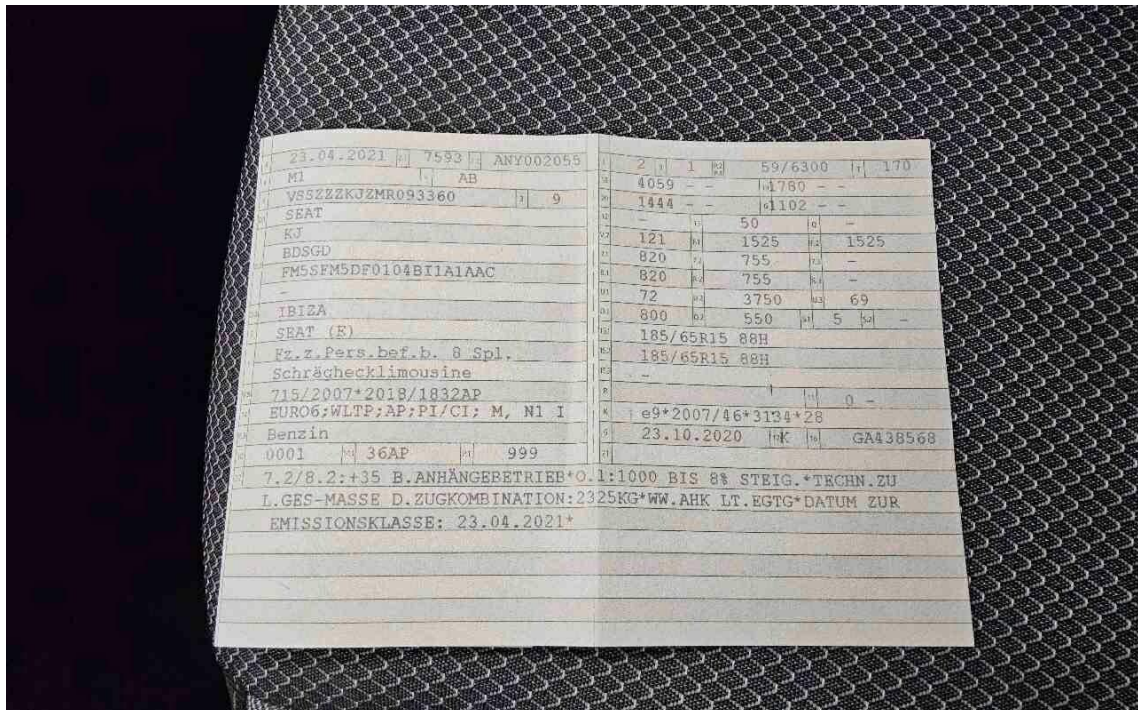 23.04.2021 7593 ANY002055
M1 AB
VSSZZZKJZMR093360 9
SEAT
KJ
BDSGD
FM5SFM5DF0104BI1A1AAC
-
IBIZA
SEAT (E)
Fz.z.Pers.bef.b. 8 Spl.
Schräghecklimousine
715/2007*2018/1832AP
EURO6;WLTP;AP;PI/CI; M, N1 I
Benzin
0001 36AP 999
2 1 59/6300 170
4059 - - 1780 - -
1444 - - 1102 - -
- 50
121 1525 1525
820 755 -
820 755 -
72 3750 69
800 550 5 -
185/65R15 88H
185/65R15 88H
- -
0 -
e9*2007/46*3134*28
23.10.2020 K GA438568
7.2/8.2:+35 B.ANHÄNGEBETRIEB*O.1:1000 BIS 8% STEIG.*TECHN.ZU
L.GES-MASSE D.ZUGKOMBINATION:2325KG*WW.AHK LT.EGTG*DATUM ZUR
EMISSIONSKLASSE: 23.04.2021*